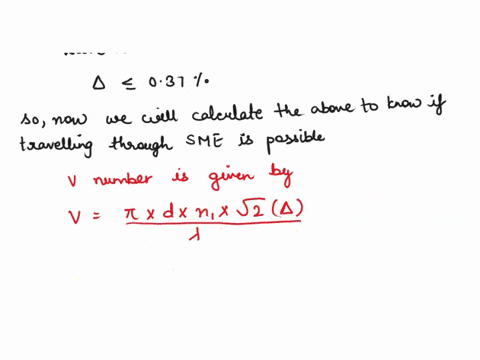 Δ ≤ 0.37 %.
so, now we will calculate the above to know if
travelling through SME is possible
V number is given by
V = π x d x n₁ x √2 (Δ)
λ